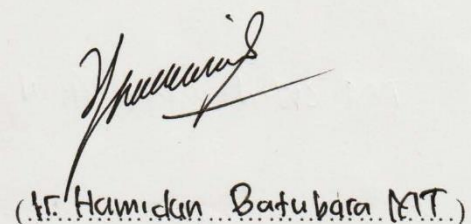 (Ir. Hamidan Batubara MT)